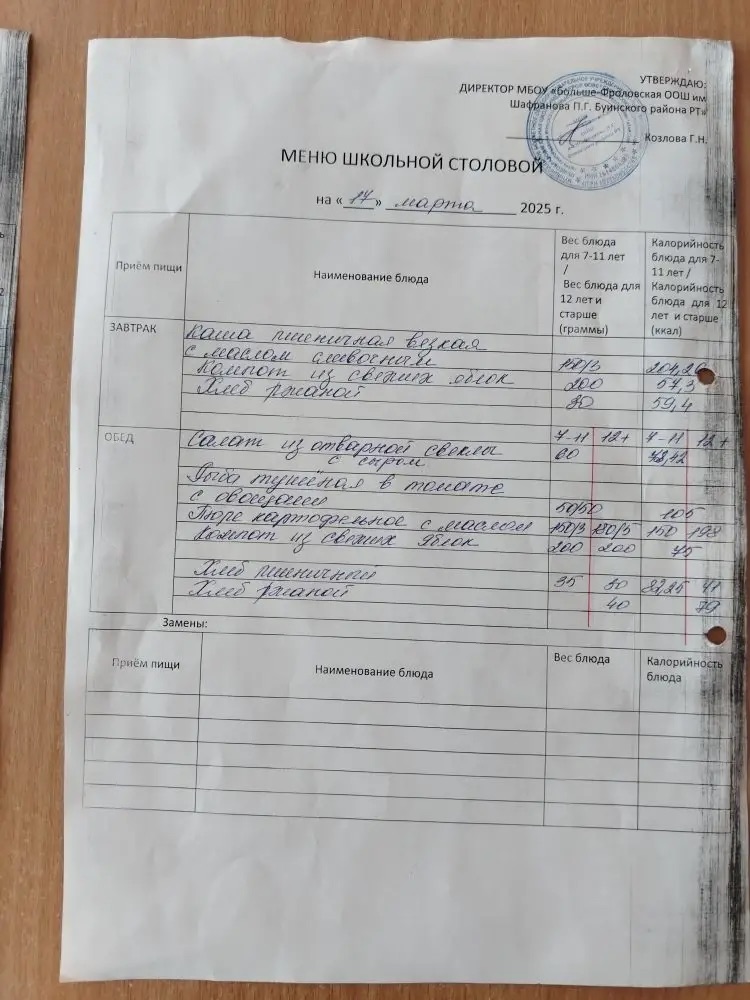 УТВЕРЖДАЮ:
ДИРЕКТОР МБОУ «Больше-Фроловская ООШ им
Шафранова П.Г. Буинского района РТ»
Козлова Г.Н.
МЕНЮ ШКОЛЬНОЙ СТОЛОВОЙ
на « 17 » марта 2025 г.
Приём пищи Наименование блюда Вес блюда для 7-11 лет / Вес блюда для 12 лет и старше (граммы) Калорийность блюда для 7-11 лет / Калорийность блюда для 12 лет и старше (ккал)
ЗАВТРАК Каша пшеничная вязкая
с маслом сливочным 150/3 204,26
Компот из свежих яблок 200 57,3
Хлеб ржаной 30 59,4
ОБЕД Салат из отварной свеклы 7-11 12+ 7-11 12+
с сыром 60 72,42
Рыба тушёная в томате
с овощами 50/50 105
Пюре картофельное с маслом 150/3 180/5 150 198
Компот из свежих яблок 200 200 75
Хлеб пшеничный 35 30 82,25 41
Хлеб ржаной 40 79
Замены:
Приём пищи Наименование блюда Вес блюда Калорийность блюда